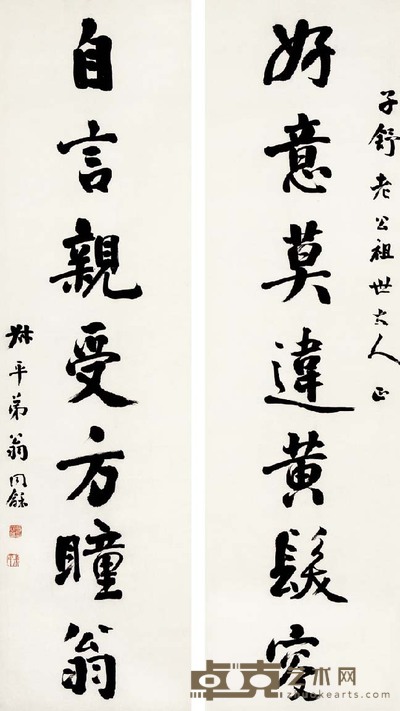 子舒老公祖世大人正
好意莫違黃髮叜
自言親受方瞳翁
叔平弟翁同龢
卓克艺术网
www.zhuokearts.com